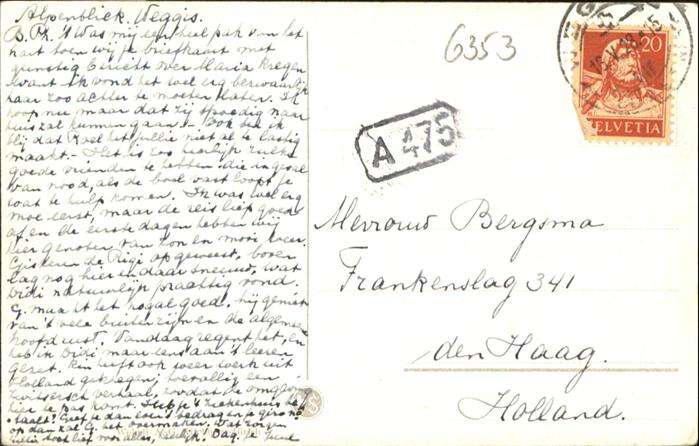 Alpenblick. Weggis.
B. Ph. 't Was mij een heel pak van het
hart toen wij je briefkaart met
gunstig bericht over Maria kregen
want ik vond het wel erg bezwaarlijk
haar zoo achter te moeten laten. Ik
hoop nu maar dat zij spoedig naar
huis zal kunnen gaan. Ook ben ik
blij dat Roel het jullie niet al te lastig
maakt. - Het is toch heerlijk zulke
goede vrienden te hebben die in geval
van nood, als de boel vast loopt je
wat te hulp komen. Ik was wel erg
moe eerst, maar de reis liep goed
af en de eerste dagen hebben wij
hier genoten van zon en mooi weer.
Gisteren de Rigi op geweest, boven
lag nog hier en daar sneeuw, wat
Didi natuurlijk prachtig vond.
G. maakt het nogal goed, hij geniet
van 't vele buiten zijn en de algemeene
hoofdrust. Vandaag regent het, en
heb ik Didi maar les aan 't leeren
Geret. heeft ook weer werk uit
Holland gekregen; toevallig een
Zwitsersch verhaal, zoodat de omgeving
hier te pas komt. Heb je 't ziekenhuis be-
taald? Geef je dan even 't bedrag en je giro no
op dan zal G. het overmaken. Wat zorgen
jullie toch lief voor alles, Heerlijk. Dag. je
6353
A 475
20
HELVETIA
Mevrouw Bergsma
Frankenslag 341
den Haag.
Holland.